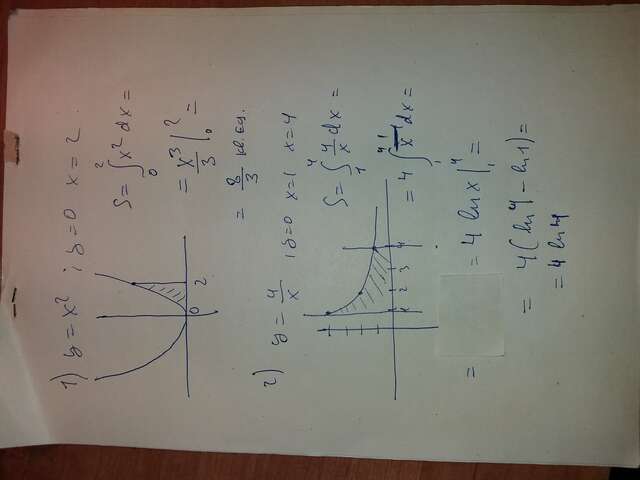 1) y = x² ; y = 0 x = 2.
S = ∫₀² x² dx =
= x³/3 |₀² =
= 8/3 кв.ед.
0 2
2) y = 4/x ; y = 0 x = 1 x = 4
S = ∫₁⁴ 4/x dx =
= 4 ∫₁⁴ 1/x dx =
2 3 4
= = 4 ln x |₁⁴ =
= 4(ln 4 - ln 1) =
= 4 ln 4